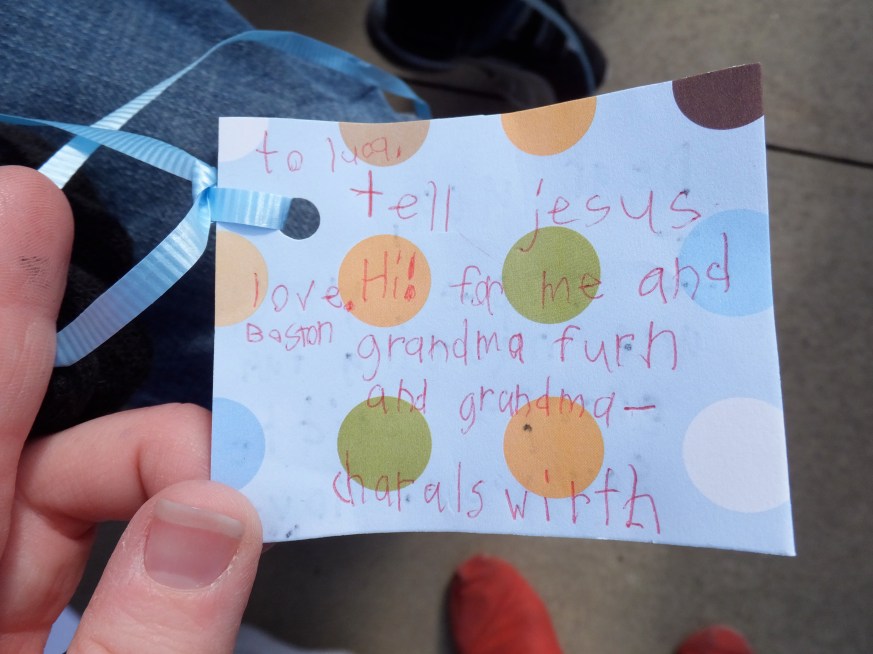 to luca.
tell jesus
Hi! for me and
grandma furn
and grandma-
charals wirth
love.
Baston